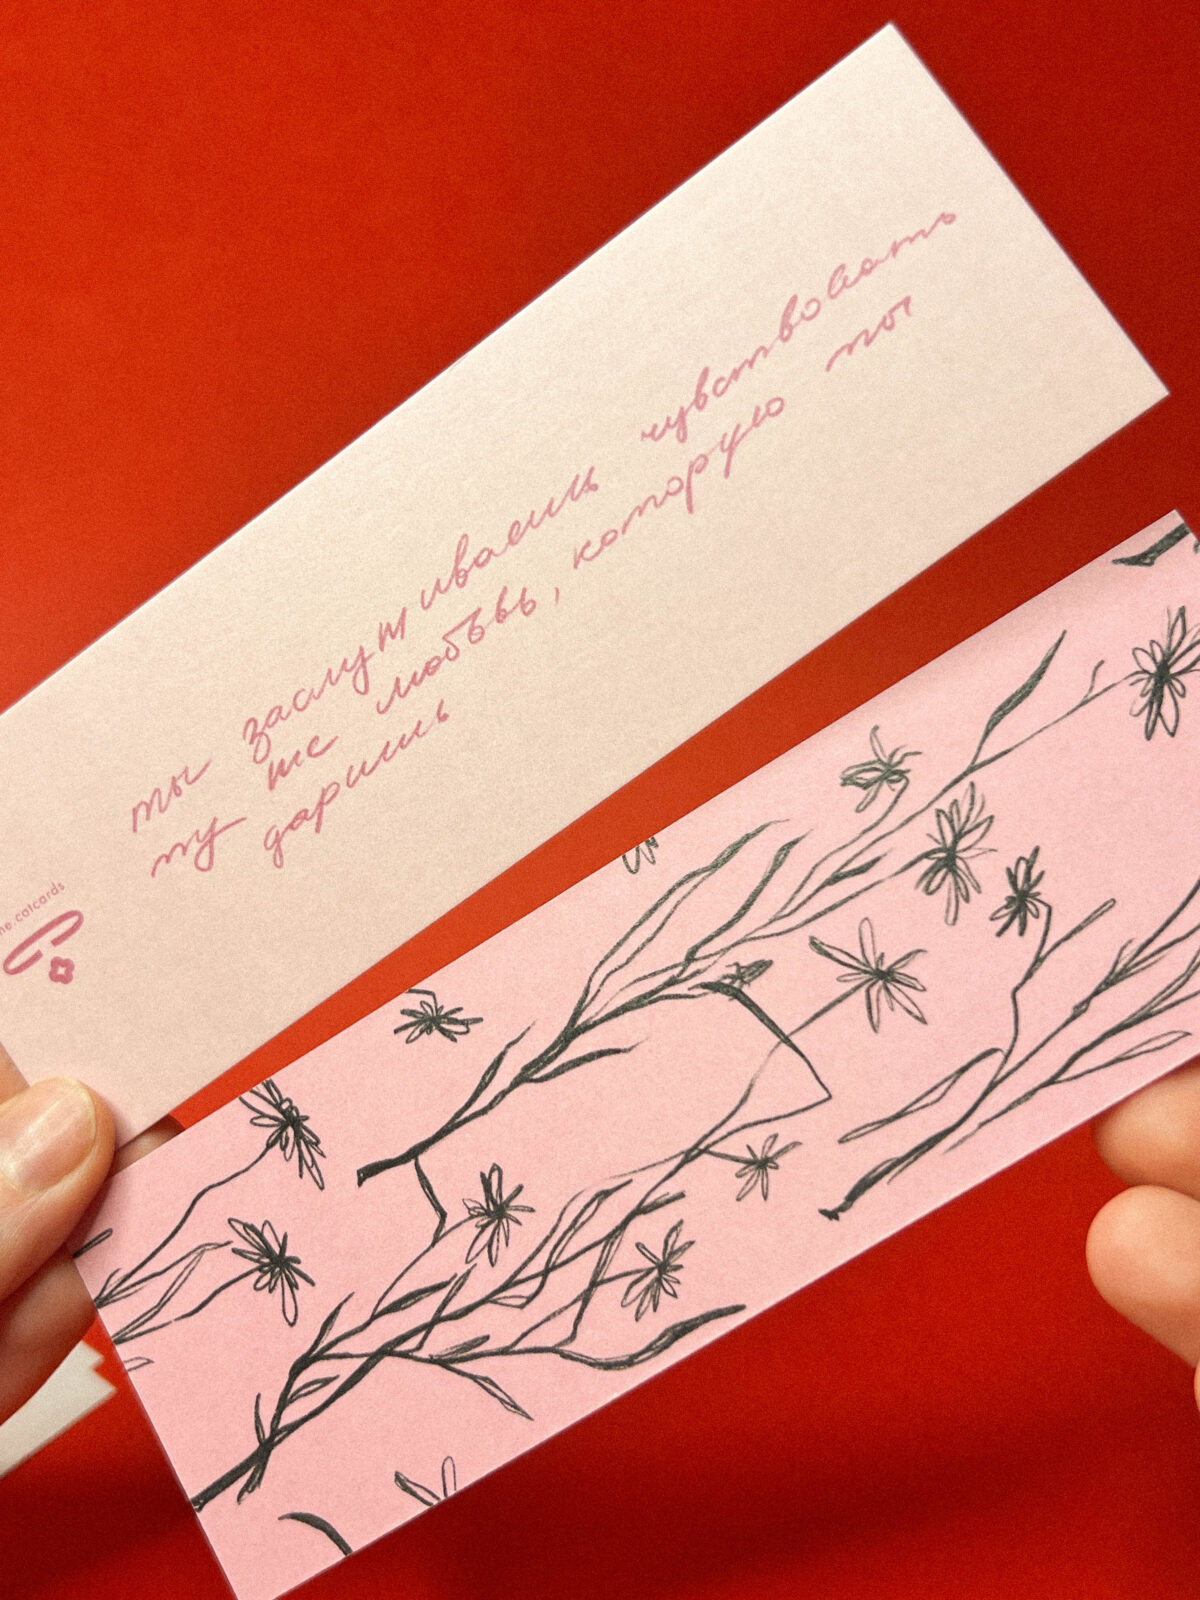 ты заслуживаешь чувствовать
ту же любовь, которую ты
даришь
he.catcards